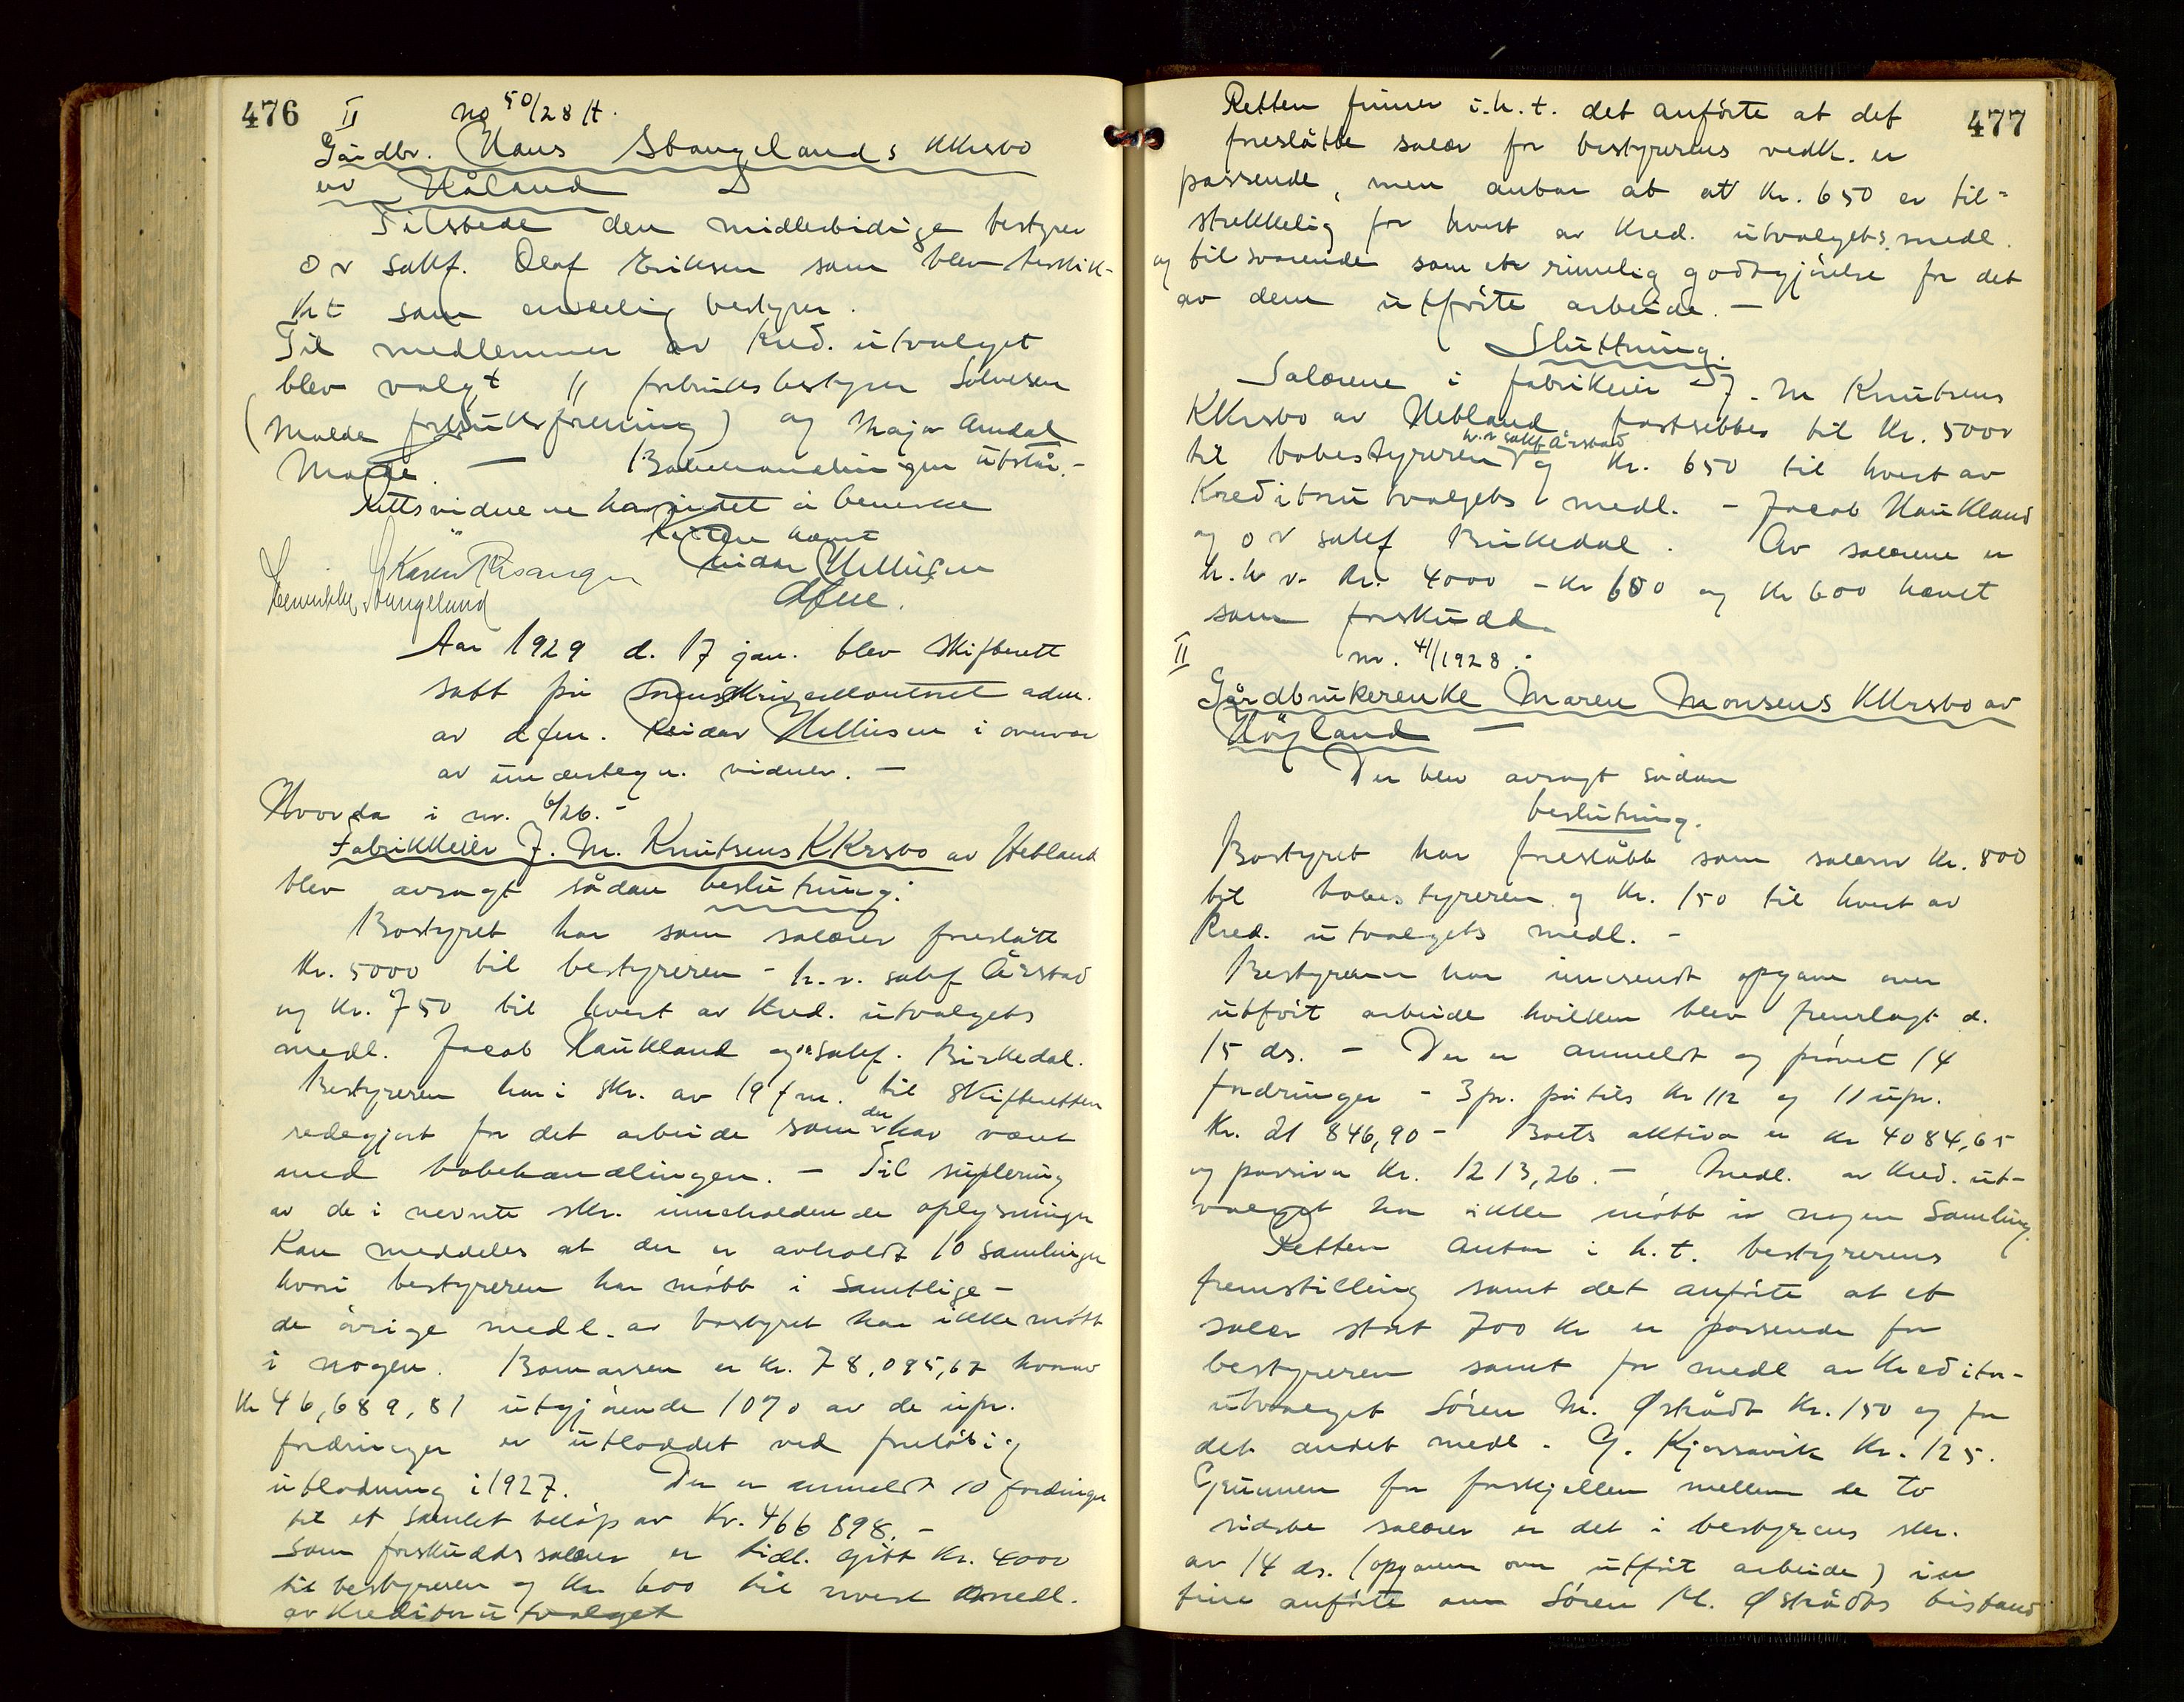 476
II no 50/28 H.
Gårdbr. Hans Stangelands KKrsbo
av Håland
Tilstede den midlertidige bestyrer
o r sakf. Olaf Eriksen som blev beskik-
ket som endelig bestyrer.
Til medlemmer av Kred. utvalget
blev valgt forbruksbestyrer Solvesen
(Molde forbruksforening) og Major Amdal
Molde. — Bobehandlingen utstår.-
Rettsvidnene har intet å bemerke
Retten hævet
Reidar Mellusen
dfm.
Karen Risanger
Stangeland
Aar 1929 d. 17 jan. blev skifterett
satt på Sorenskriverkontoret adm.
av dfm. Reidar Mellusen i overvær
av undertegn. vidner. —
Hvorda i nr. 6/26. -
Fabrikkeier J. M. Knutsens KKrsbo av Hebland
blev avsagt sådan beslutning:
Bostyret har som salærer foreslått
Kr. 5000 til bestyreren - h.r. sakf Årstad
og Kr. 750 til hvert av Kred. utvalgets
medl. Jacob Haukland og or sakf. Birkedal.
Bestyreren har i skr. av 19 f.m. til Skifteretten
redegjort for det arbeide som der har været
med bobehandlingen. — Til suplering
av de i nevnte skr. inneholdende oplysninger
Kan meddeles at der er avholdt 10 samlinger
hvori bestyreren har møtt i samtlige -
de øvrige medl. av bostyret har ikke møtt
i nogen. Bomassen er kr. 78,095,67 hvorav
Kr 46,689,81 utgjørende 10% av de upr.
fordringer er utloddet ved foreløbig
utlodning i 1927. Der er anmeldt 10 fordringer
til et samlet beløp av Kr. 466 898. -
Som forskuddssalærer er tidl. gitt Kr. 4000
til bestyreren og Kr. 600 til hvert medl.
av Kreditorutvalget
477
Retten finner i.h.t. det anførte at det
foreslåtte salær for bestyrerens vedk. er
passende, men antar at at Kr. 650 er til-
strekkelig for hvert av Kred. utvalgets medl.
og tilsvarende som en rimelig godtgjørelse for det
av dem utførte arbeide. —
Sluttning.
Salærene i fabrikeier J. M Knutsens
KKrsbo av Hebland fastsettes til Kr. 5000
til bobestyreren h.r sakf Årstad og Kr. 650 til hvert av
Kreditorutvalgets medl. - Jacob Haukland
og o r sakf Birkedal. Av salærene er
h.h v. Kr. 4000 - Kr 600 og Kr 600 hævet
som forskudd.
II nr. 41/1928. -
Gårdbrukerenke Maren Monsens KKrsbo av
Høyland —
Der blev avsagt sådan
beslutning.
Bostyret har foreslått som salærer Kr. 800
til bobestyreren og Kr. 150 til hvert av
Kred. utvalgets medl. -
Bestyreren har innsendt opgave over
utført arbeide hvilken blev fremlagt d.
15 ds. - Der er anmeldt og prøvet 14
fordringer - 3 pr. på tils Kr 112 og 11 upr.
Kr. 21 846,90 - Boets aktiva er Kr 4084,65
og passiva Kr. 1213,26. - Medl. av Kred. ut-
valget har ikke møtt i nogen samling.
Retten antar i h.t. bestyrerens
fremstilling samt det anførte at et
salær stort 700 Kr er passende for
bestyreren samt for medl av Kreditor-
utvalget Søren M. Østrådt Kr. 150 og for
det andet medl. G. Kjosavik Kr. 125.
Grunnen for forskjellen mellem de to
sidste salærer er det i bestyrerens skr.
av 14 ds. (opgaven over utført arbeide) in
fine anførte om Søren M. Østrådts bistand